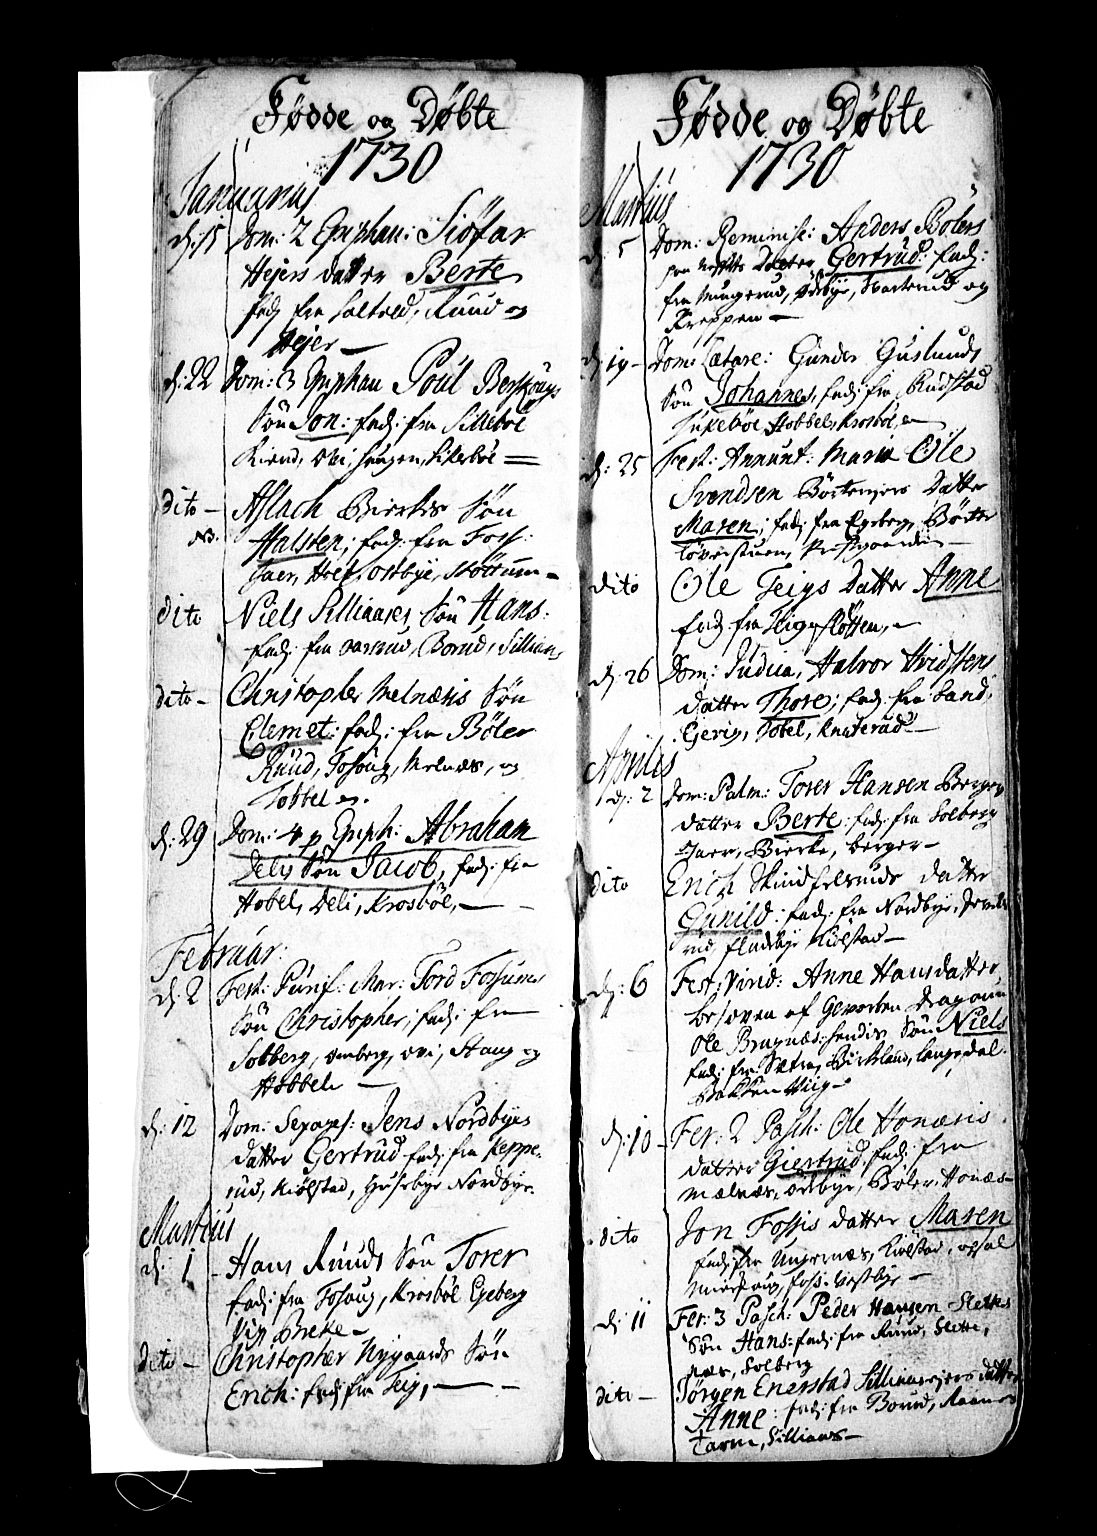 Fødde og Døbte
1730
Januarius
d: 15 Dom: 2 Epiphan: Siøfar
Hejers datter Berte
fad: fra Soltved, Ruud og
Hejer —
d: 22 Dom: 3 Epiphan Poul
Søn Jon: fad: fra Sillebøl
Haugen,
dito — Aslach Bierkes Søn
NB. Halsten; fad: fra Foss:
Jaer, Hoel, Ostbye, —
dito Niels Sillinases Søn Hans:
fad: fra Borud, Sillians
dito — Christopher Melnæsis Søn
Clemet: fad: fra Bøler
Ruud, Tosoug, Melnæs, og
Tobbel
d: 29 Dom: 4 p Epiph: Abraham
Delis Søn Jacob, fad: fra
Hobel, Deli, Krosbøl, —
Februar:
d: 2 Fest: Purif: Mar: Tord Fossums
Søn Christopher; fad: fra
Solberg, Omberg, Ovi, Haug og
Hobbel —
d: 12 Dom: Sexages: Jens Nordbyes
datter Gertrud fad: fra Keppe-
rud, Kiølstad, Huseby Nordbye.
Martius
d: 1 — Hans Ruuds Søn Torer
fad: fra Tosoug, Krosbøl Egeberg
Breke —
dito — Christopher Nygaards Søn
Erich: fad: fra Teig, —
Fødde og Døbte
1730
Martius
d: 5 Dom: Reminisc: Anders Bølers
datter Gertrud: fad:
fra Mungerud, Ostbye, og
Kreppen —
d: 19 — Dom: Lætare: Gunder Guslunds
Søn Johannes, fad: fra Rudstad
Hobbel, Krosbøl,
d: 25 Fest: Annunt: Mariæ Ole
Svendsen Datter
Maren; fad: fra Egeberg,
—
dito Ole Teigs Datter Anne
fad: fra Teig, Sletten, —
d: 26 Dom: Judica, Halvor Hvidstens
datter Thore; fad: fra Sand,
Gjerig, Tobel, Knaterud —
Aprilis
d: 2 Dom: Palm: Torer Hansen Berger
datter Berte: fad: fra Solberg
Jaer, Bierke, Berger —
dito Erich Skindfelruds datter
Gunild: fad: fra Nordbye,
rud, Fladbye Kiølstad —
d: 6 Fest: Virid: Anne Hansdatter,
besoven af Geworben Dragoun
Ole Bragnæs: hendis Søn Niels
fad: fra Sætra, Birkeland, Langedal.
Bakken Viig —
d: 10 — Fer: 2 Pasch: Ole Honæsis
datter Giertrud: fad: fra
Mælnæs, Ostbye, Bøler, Honæs —
dito Jon Fossis datter Maren
fad: fra Ungernæs, Kiølstad, Opsal
Foss. Vestbye —
d: 11 Fer: 3 Pasch: Peder Hansen Slettes
Søn Hans: fad: fra Ruud, Slette,
Næs, Solberg
dito — Jørgen Enerstad datter
Anne: fad: fra Borud,
Tarm, Sillians —